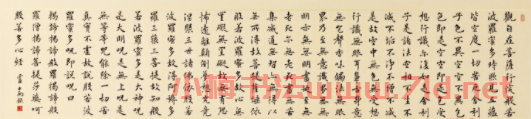 觀自在菩薩行深般若
波羅蜜多時照見五蘊
皆空度一切苦厄舍利
子色不異空空不異色
色即是空空即是色受
想行識亦復如是舍利
子是諸法空相不生不
滅不垢不淨不增不減
是故空中無色無受想
行識無眼耳鼻舌身意
無色聲香味觸法無眼
界乃至無意識界無無
明亦無無明盡乃至無
老死亦無老死盡無苦
集滅道無智亦無得以
無所得故菩提薩埵依
般若波羅蜜多故心無
罣礙無罣礙故無有恐
怖遠離顛倒夢想究竟
涅槃三世諸佛依般若
波羅蜜多故得阿耨多
羅三藐三菩提故知般
若波羅蜜多是大神咒
是大明咒是無上咒是
無等等咒能除一切苦
真實不虛故說般若波
羅蜜多咒即說咒曰
揭諦揭諦波羅揭諦波
羅僧揭諦菩提薩婆訶
般若多心經